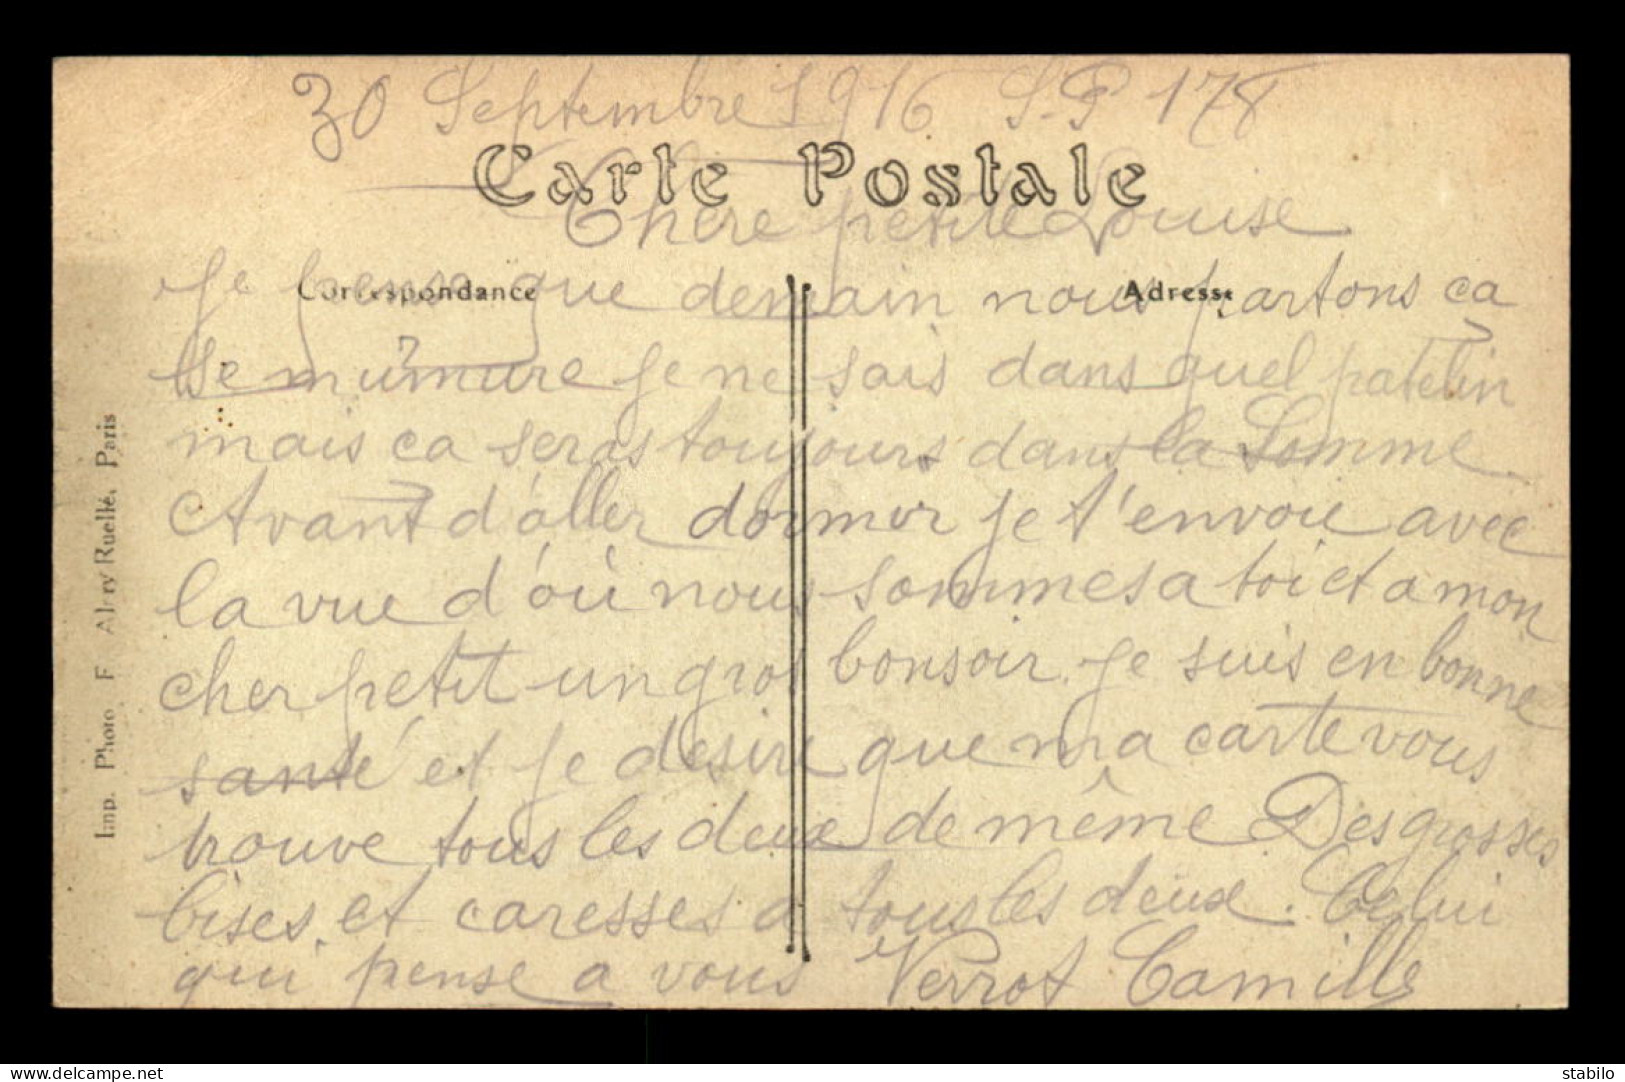 30 Septembre 1916 S.P 178
Carte Postale
Chère petite Louise
Je pense que demain nous partons ça
Correspondance
Adresse
se mûrmure je ne sais dans quel patelin
mais ca seras toujours dans la Somme.
Avant d'aller dormir je t'envoie avec
la vue d'où nous sommes a toi et a mon
cher petit un gros bonsoir. Je suis en bonne
santé et je desire que ma carte vous
trouve tous les deux de même Des grosses
bises et caresses a tous les deux. Celui
qui pense a vous Verrot Camille
Imp. Photo F Albry Ruellé, Paris
delcampe.net
stabilo